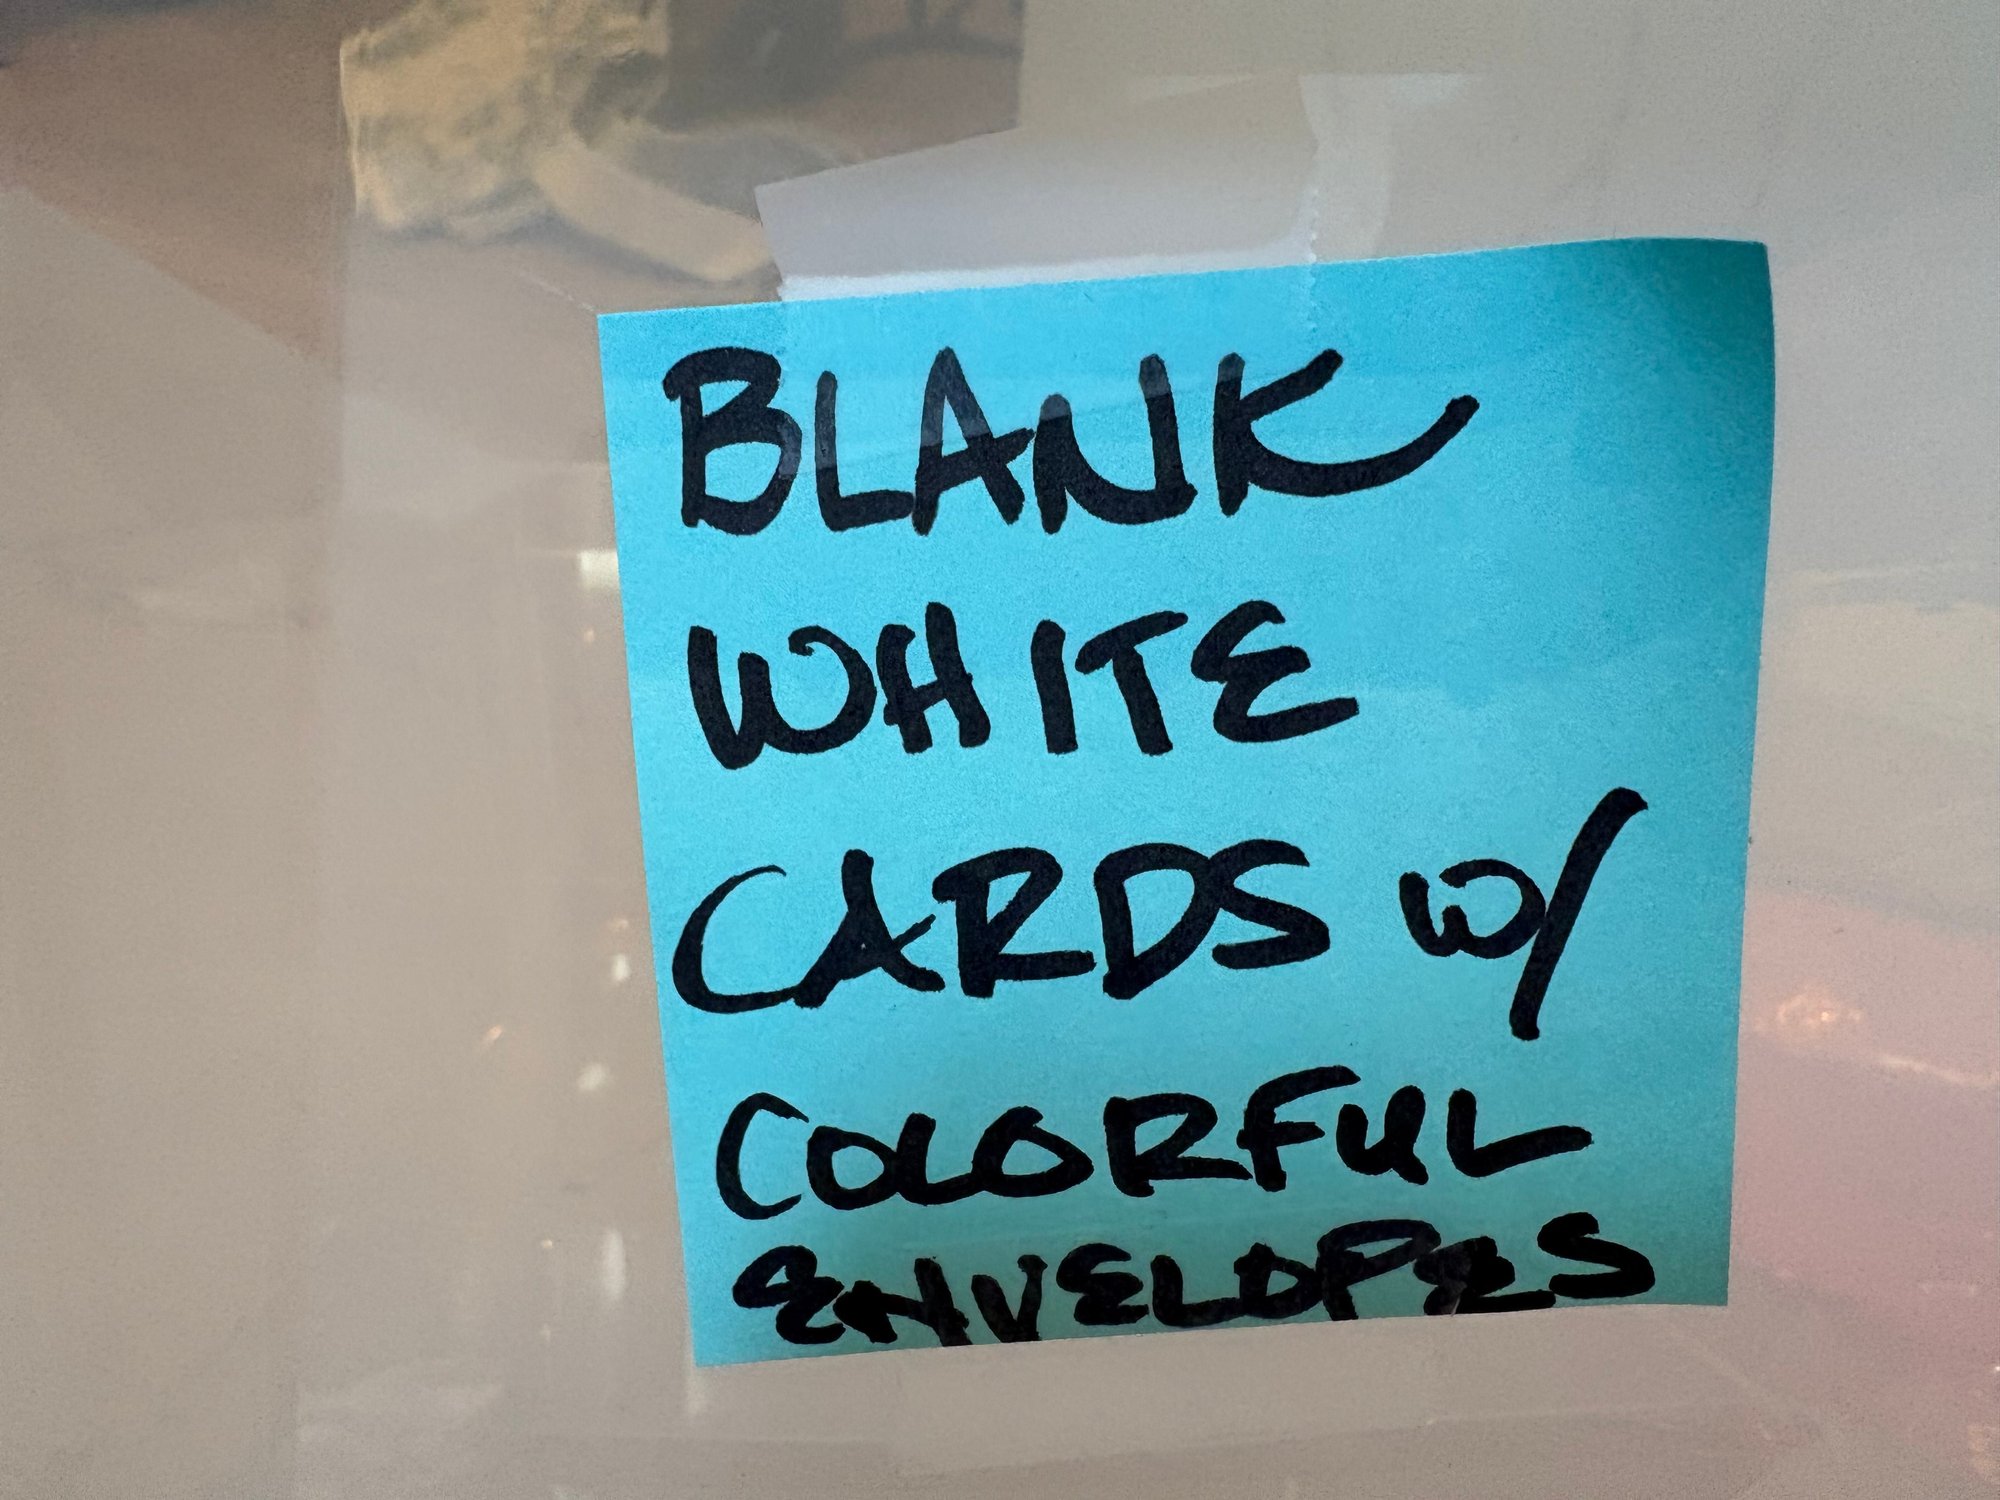 BLANK
WHITE
CARDS w/
COLORFUL
ENVELOPES